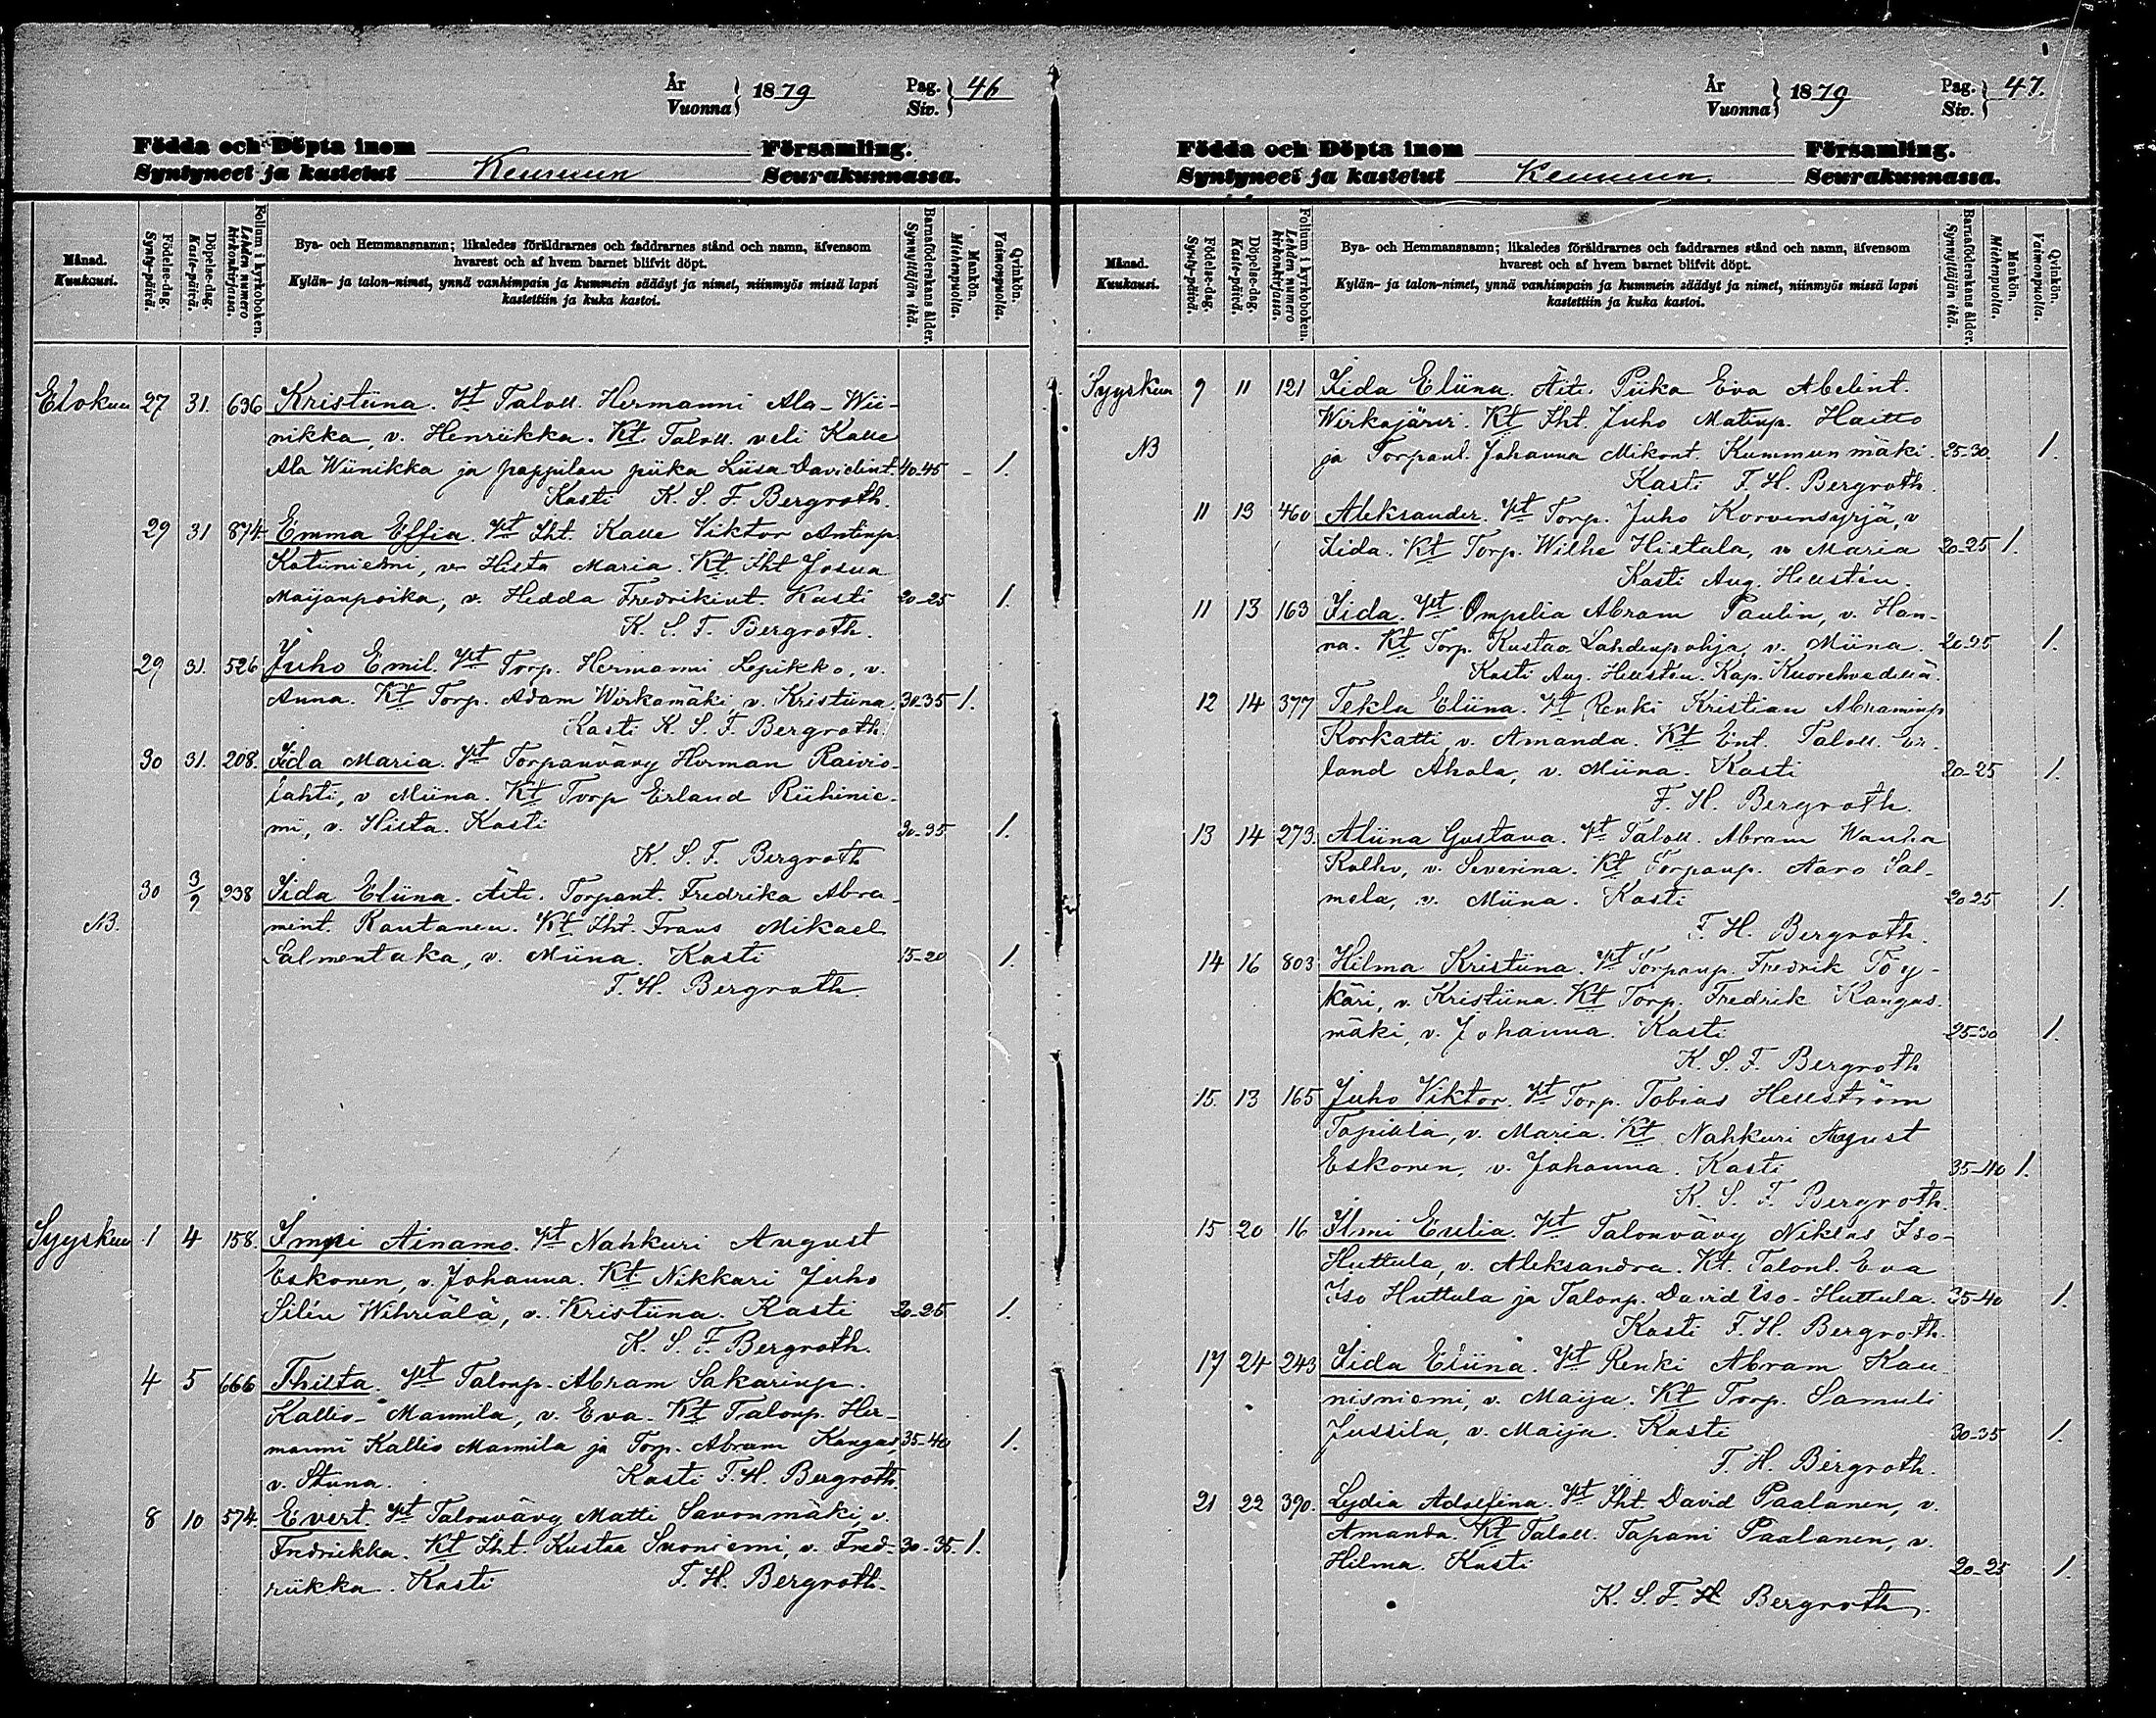 År
Vuonna } 1879 Pag.
Siv. } 46
Födda och Döpta inom Församling.
Syntyneet ja kastetut Keuruun Seurakunnassa.
Månad.
Kuukausi.
Födelse-dag.
Synty-päivä.
Döpelse-dag.
Kaste-päivä.
Folium i kyrkoboken.
Lehden numero kirkonkirjassa.
Bya- och Hemmansnamn; likaledes föräldrarnes och faddrarnes stånd och namn, äfvensom
hvarest och af hvem barnet blifvit döpt.
Kylän- ja talon-nimet, ynnä vanhimpain ja kummein säädyt ja nimet, niinmyös missä lapsi
kastettiin ja kuka kastoi.
Barnaföderskans ålder.
Synnyttäjän ikä.
Mankön.
Miehenpuolia.
Qvinkön.
Vaimonpuolia.
Elokuu 27 31. 636 Kristiina. Vt Taloll. Hermanni Ala-Wii-
nikka, v. Henriikka. Kt. Taloll. veli Kalle
Ala Wiinikka ja pappilan piika Liisa Davidint. 40-45 - 1.
Kasti K. S. F. Bergroth.
29 31 874. Emma Effia. Vt Iht. Kalle Viktor Antinp.
Katiniemi, v. Hista Maria. Kt. Iht Josua
Maijanpoika, v. Hedda Fredrikint. Kasti 20-25 1.
K. S. F. Bergroth.
29 31. 526 Juho Emil. Vt Torp. Hermanni Lepikko, v.
Anna. Kt Torp. Adam Wirkamäki, v. Kristiina. 30-35 1.
Kasti K. S. F. Bergroth.
30 31. 208. Iida Maria. Vt Torpanvävy Herman Raivio-
lahti, v Miina. Kt Torp Erland Riihinie-
mi, v. Hista. Kasti 30-35 1.
K. S. F. Bergroth
30 3/9 238 Iida Eliina. Äiti. Torpant. Fredrika Abra-
NB. mint. Rautanen. Kt. Iht. Frans Mikael
Salmentaka, v. Miina. Kasti 15-20 1.
F. H. Bergroth.
Syyskuu 1 4 158. Impi Ainamo. Vt Nahkuri August
Eskonen, v. Johanna. Kt. Nikkari Juho
Silén Wihriälä, v. Kristiina. Kasti 20-25 1.
K. S. F. Bergroth.
4 5 666 Thilta. Vt Talonp. Abram Sakarinp.
Kallio-Mannila, v. Eva. Kt Talonp. Her-
manni Kallio Mannila ja Torp. Abram Kangas, 35-40 1.
v. Stiina. Kasti F. H. Bergroth.
8 10 574. Evert. Vt Talonvävy Matti Savonmäki, v.
Fredriikka. Kt Iht. Kustaa Suoniemi, v. Fred- 30-35. 1.
riikka. Kasti F. H. Bergroth.
År
Vuonna } 1879 Pag.
Siv. } 47.
Födda och Döpta inom Församling.
Syntyneet ja kastetut Keuruun Seurakunnassa.
Månad.
Kuukausi.
Födelse-dag.
Synty-päivä.
Döpelse-dag.
Kaste-päivä.
Folium i kyrkoboken.
Lehden numero kirkonkirjassa.
Bya- och Hemmansnamn; likaledes föräldrarnes och faddrarnes stånd och namn, äfvensom
hvarest och af hvem barnet blifvit döpt.
Kylän- ja talon-nimet, ynnä vanhimpain ja kummein säädyt ja nimet, niinmyös missä lapsi
kastettiin ja kuka kastoi.
Barnaföderskans ålder.
Synnyttäjän ikä.
Mankön.
Miehenpuolia.
Qvinkön.
Vaimonpuolia.
Syyskuu 9 11 121 Iida Eliina. Äiti. Piika Eva Abelint.
Wirkajärvi. Kt Iht. Juho Matinp. Haitto
NB ja Torpanl. Johanna Mikont. Kummunmäki. 25-30 1.
Kasti F. H. Bergroth.
11 13 460 Aleksander. Vt Torp. Juho Korvensyrjä, v
Iida. Kt Torp. Wilhe Hietala, v. Maria 20-25 1.
Kasti Aug. Hellstén.
11 13 163 Iida. Vt Ompelia Abram Paulin, v. Han-
na. Kt Torp. Kustaa Lahdenpohja, v. Miina. 20-25 1.
Kasti Aug. Hellstén. Kap. Kuorehvedellä.
12 14 377 Tekla Eliina. Vt Renki Kristian Abraminp
Korkatti, v. Amanda. Kt Ent. Taloll. Er-
land Ahola, v. Miina. Kasti 20-25 1.
F. H. Bergroth.
13 14 273. Aliina Gustava. Vt Taloll. Abram Wanha
Kalho, v. Severina. Kt Torpanp. Aaro Sal-
mela, v. Miina. Kasti 20-25 1.
F. H. Bergroth.
14 16 803 Hilma Kristiina. Vt Torpanp. Fredrik Töy-
käri, v. Kristiina. Kt Torp. Fredrik Kangas-
mäki, v. Johanna. Kasti 25-30 1.
K. S. F. Bergroth
15. 13 165 Juho Viktor. Vt Torp. Tobias Hellström
Tapiola, v. Maria. Kt. Nahkuri August
Eskonen, v. Johanna. Kasti 35-40 1.
K. S. F. Bergroth.
15 20 16 Ilmi Eulia. Vt Talonvävy Niklas Iso-
Huttula, v. Aleksandra. Kt. Talonl. Eva
Iso Huttula ja Talonp. David Iso-Huttula. 35-40 1.
Kasti F. H. Bergroth.
17 24 243 Iida Eliina. Vt Renki Abram Kau-
nisniemi, v. Maija. Kt Torp. Samuli
Jussila, v. Maija. Kasti 30-35 1.
F. H. Bergroth.
21 22 390. Lydia Adolfina. Vt Iht. David Paalanen, v.
Amanda. Kt Taloll. Tapani Paalanen, v.
Hilma. Kasti 20-25 1.
K. S. F. H Bergroth.